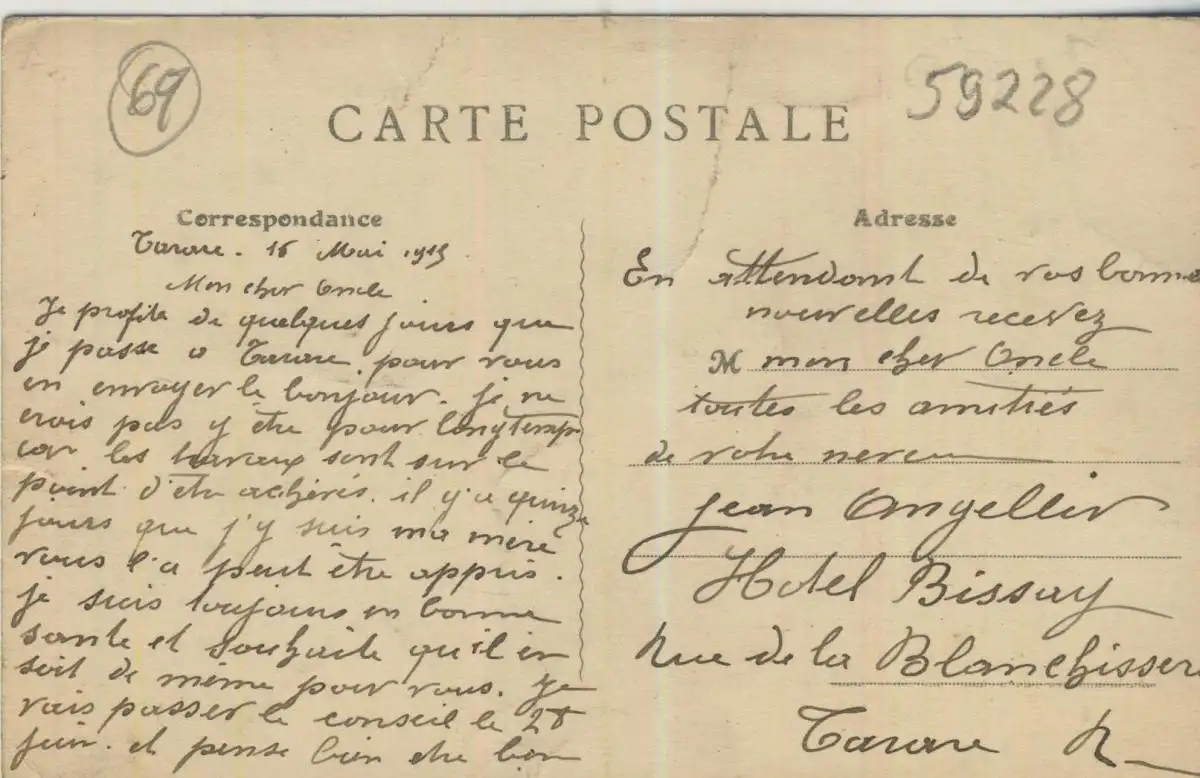 69
59228
CARTE POSTALE
Correspondance
Tarare. 16 Mai 1915
Mon cher Oncle
Je profite de quelques jours que
je passe a Tarare pour vous
en envoyer le bonjour. je ne
crois pas y être pour longtemps
car les travaux sont sur le
point d'être achevés. il y a quinze
jours que j'y suis ma mère
vous l'a peut être appris.
je suis toujours en bonne
sante et souhaite qu'il en
soit de même pour vous. Je
vais passer le conseil le 28
juin. et pense bien etre bon
Adresse
En attendant de vos bonne
nouvelles recevez
M mon cher Oncle
toutes les amitiés
de votre neveu
Jean Angellier
Hotel Bissay
Rue de la Blanchisser
Tarare R